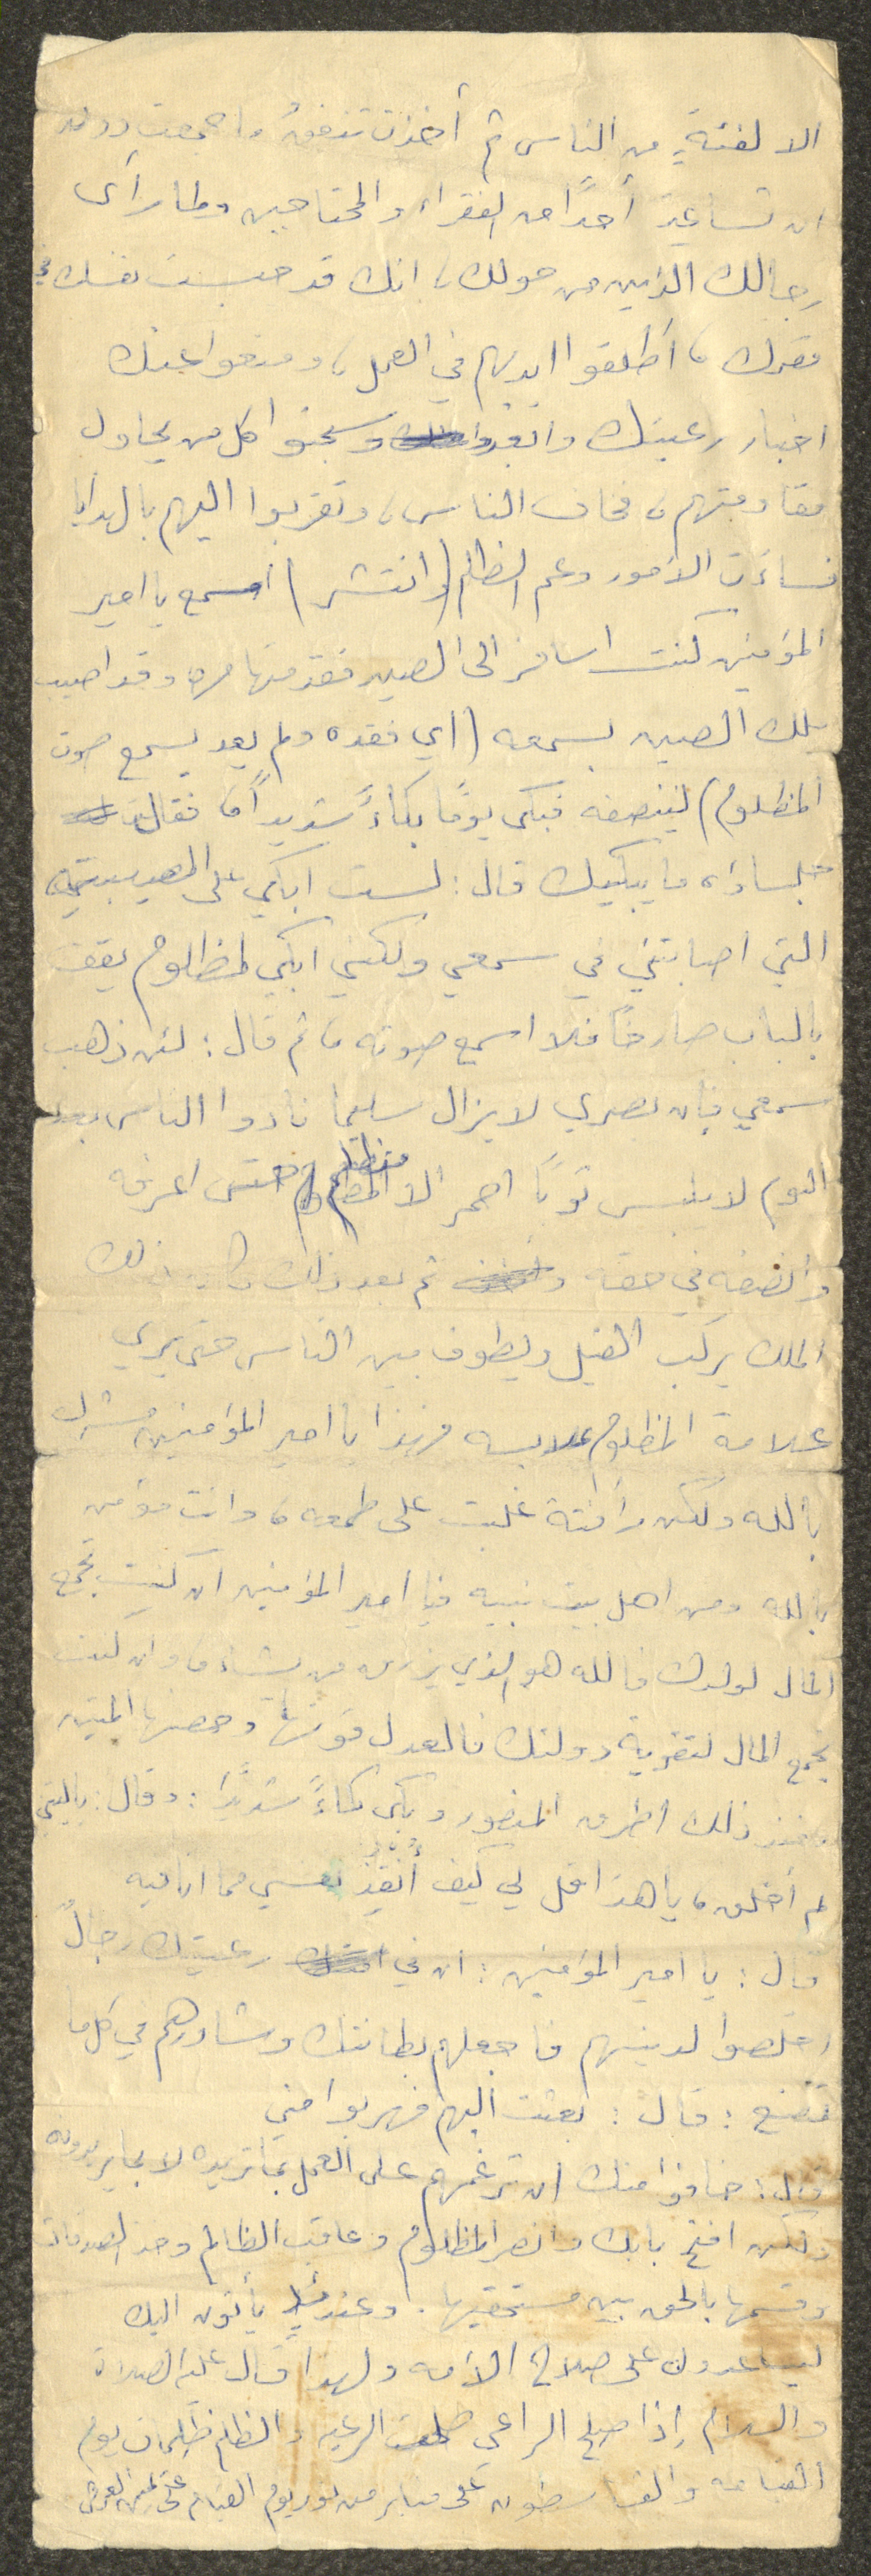 الا لفئة من الناس ثم أخذت تنفقه واجمعت دون
ان تساعد أحدًا من الفقراء والمحتاجين ولما رأى
رجالك الذين من حولك، انك قد حبست نفسك في
مقرك، أطلقوا ايديهم في العمل، ومنعوا عنك
اخبار رعيتك وسجنوا كل من يحاول
مقاومتهم، فخاف الناس، وتقربوا اليهم بالهدايا
فساءت الأمور وعم الظلم (وانتشر) اسمع يا امير
المؤمنين كنت اسافر الى الصين فقدمتها مره وقد اصيب
ملك الصين بسمعه (اي فقده ولم يعد يسمع صوت
المظلوم) لينصفه فبكى يومًا بكاءً شديدًا، فقال له
جلساؤه ما يبكيك قال: لست ابكي على المصيبة
التي اصابتني في سمعي ولكني ابكي لمظلوم يقف
بالباب صارخًا فلا اسمع صوته، ثم قال: لئن ذهب
سمعي فإن بصري لا يزال سليما نادوا الناس بعد
اليوم لا يلبس ثوبًا احمر الا متظلم حتى اعرفه
وانصفه في حقه ثم بعد ذلك كان ذلك
الملك يركب الفيل ويطوف بين الناس حتى يرى
علامة المظلوم بملابسه فهذا يا امير المؤمنين مشرك
بالله ولكن رأفته غلبت على طمعه، وانت مؤمن
بالله ومن اهل بيت نبيه فيا امير المؤمنين ان كنت تجمع
المال لولدك فالله هو الذي يرزق من يشاء، وان كنت
تجمع المال لتقوية دولتك فالعدل قوتها وحصنها المتين
عند ذلك اطرق المنصور وبكى بكاءً شديدًا: وقال: ياليتني
لم أخلق، يا هذا قل لي كيف أُنقِذُ نفسي مما انا فيه
قال: يا امير المؤمنين: ان في رعيتك رجالٌ
اخلصوا لدينهم فاجعلهم بطانتك وشاورهم في كل ما
تصنع: قال: بعثت اليهم فهربوا مني
قيل: خافوا منك ان ترغمهم على العمل بما تريده لا بما يريدونه
ولكن افتح بابك وانصر المظلوم وعاقب الظالم وخذ الصدقات
وقسمها بالحق بين مستحقيها. وعندئذٍ يأتون اليك
ليساعدوك على صلاح الأمه ولهذا قال عليه الصلاة
والسلام إذا صلح الراعي صلحت الرعيه والظلم ظلمات يوم
القيامه والمقسطون على منابر من نور يوم القيام على يمين العرش